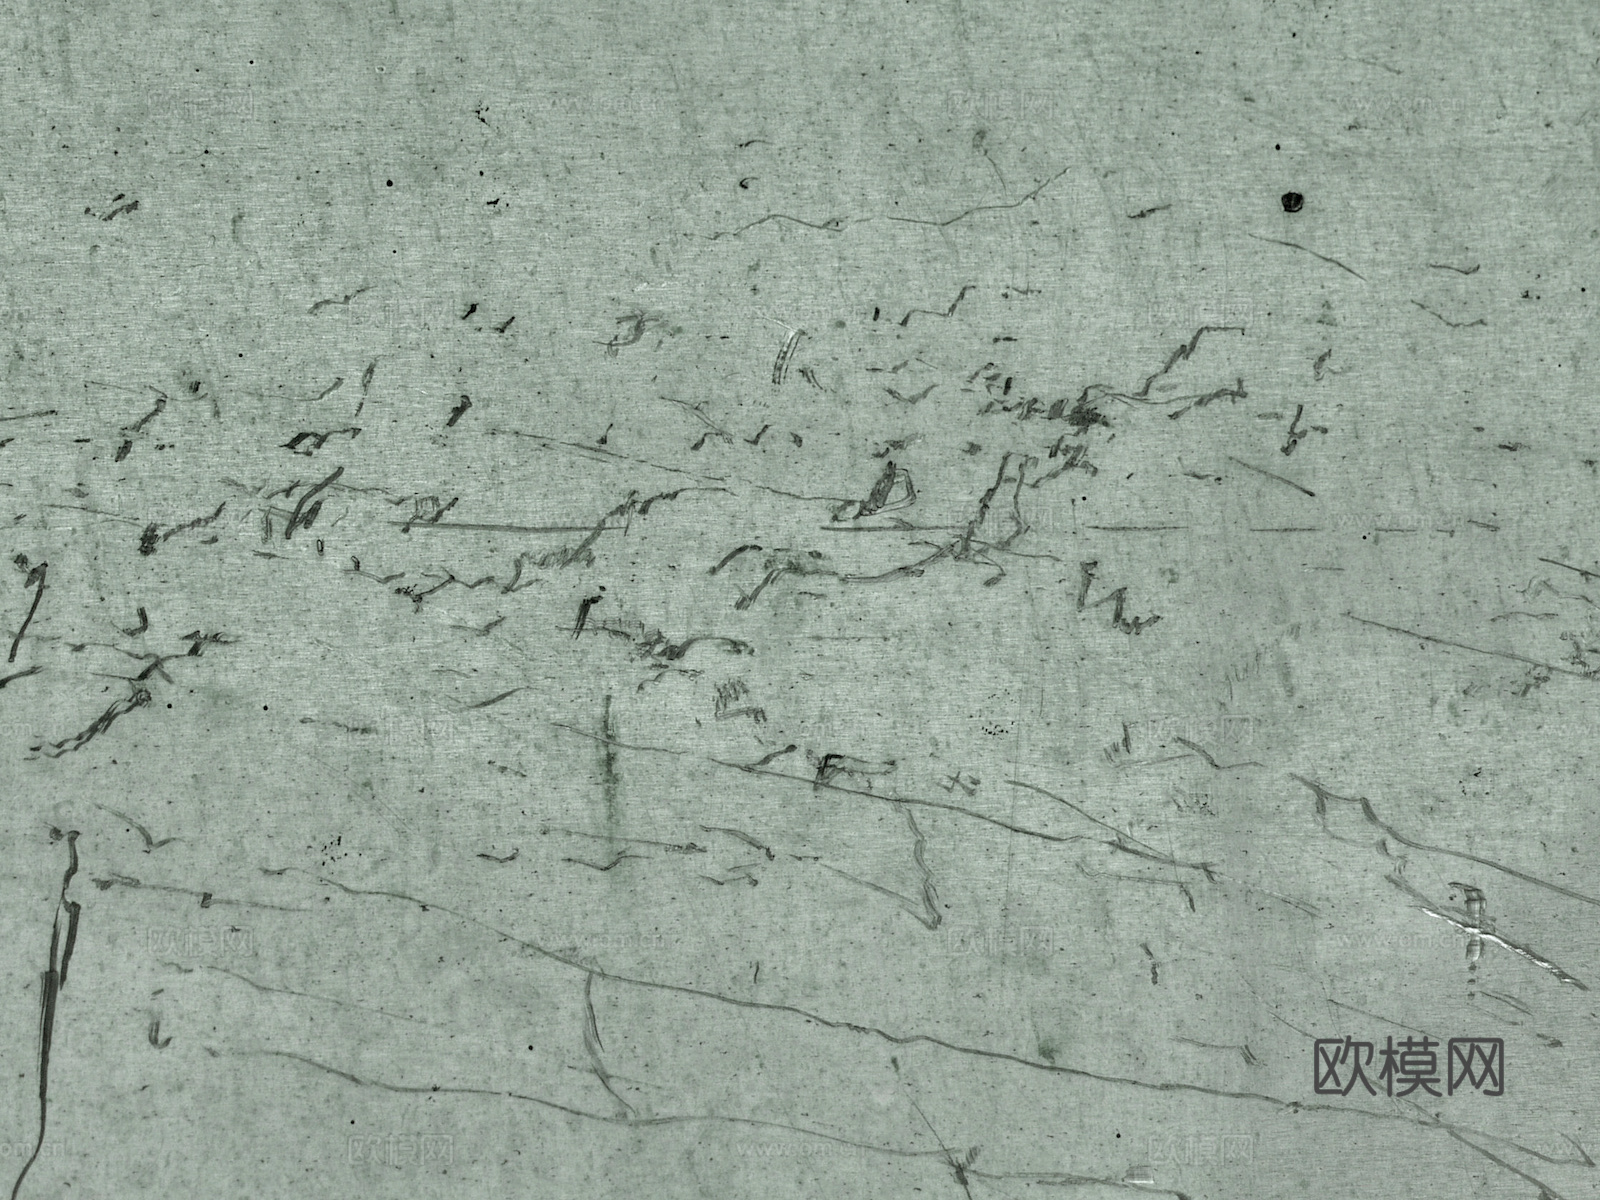 欧模网